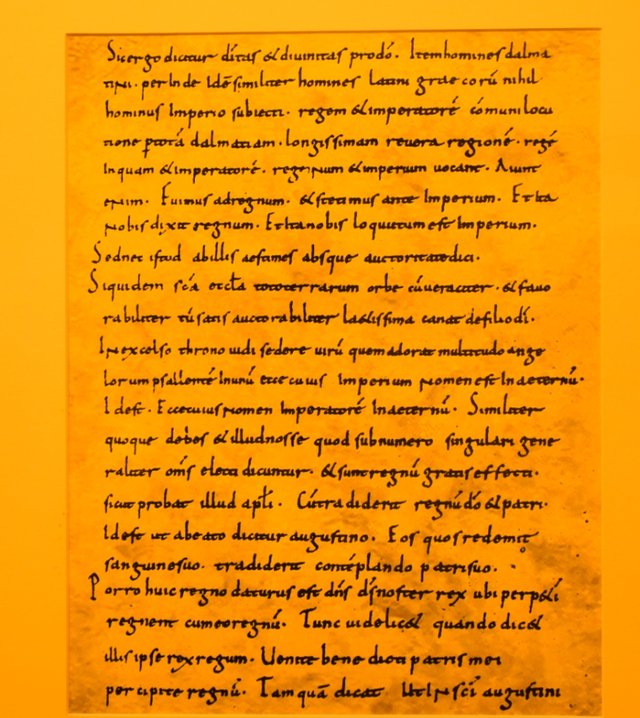 Sic ergo dicitur dītas & diuinitas prodō. Item homines dalma
tini. perinde idē similiter homines latini graecorū nihil
hominus imperio subiecti. regem & imperatorē cōmuni locu
tione ptotā dalmatiam. longissimam reuera regionē. regē
inquam & imperatorē. regenum & imperium uocant. Aiunt
enim. Fuimus ad regnum. & stetimus ante imperium. Et ita
nobis dixit regnum. Et ita nobis loquutum est imperium.
Sed nec istud ab illis aestimes absque auctoritate dici.
Siquidem scā eccla toto terrarum orbe cū ueraciter. & fauo
rabiliter tū satis auctorabiliter laetissima canat de filio dī.
In excelso throno uidi sedere uirū quem adorat multitudo ange
lorum psallentē in unū ecce cuius imperium nomen est in aeternū.
Id est. Ecce cuius nomen imperatorē in aeternū. Similiter
quoque debes & illud nosse quod sub numero singulari gene
raliter oms electi dicuntur. & sunt regnū gratis effecti.
sicut probat illud apli. Cū tradiderit regnū dō & patri.
Id est ut a beato dicitur augustino. Eos quos redemit
sanguine suo. tradiderit contēplando patri suo.
Porro huic regno daturus est dns ds noster rex ubi perp&i
regnent cum eo regnū. Tunc uidelic& quando dic&
illis ipse rex regum. Uenite benedicti patris mei
percipite regnū. Tamquā dicat ut In sci augustini